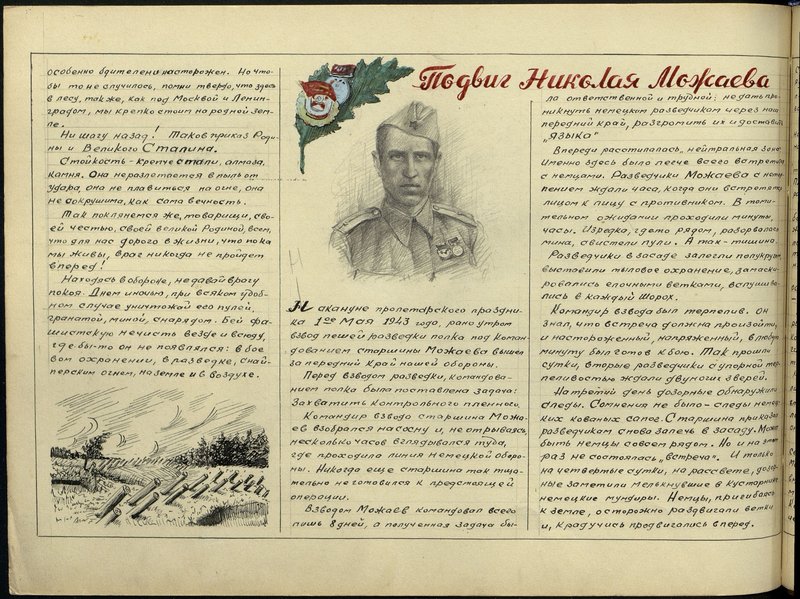 особенно бдителен и насторожен. Но что-
бы то не случилось, помни твердо, что здесь
в лесу, так же, как под Москвой и Ленин-
градом, мы крепко стоим на родной зем-
ле.
Ни шагу назад! Таков приказ Роди-
ны и Великого Сталина.
Стойкость - крепче стали, алмаза,
камня. Она не разлетается в пыль от
удара, она не плавиться на огне, она
не сокрушима, как сама вечность.
Так поклянемся же, товарищи, сво-
ей честью, своей великой Родиной, всем,
что для нас дорого в жизни, что пока
мы живы, враг никогда не пройдет
вперед!
Находясь в обороне, не давай врагу
покоя. Днем и ночью, при всяком удоб-
ном случае уничтожай его пулей,
гранатой, миной, снарядом. Бей фа-
шистскую нечисть везде и всюду,
где бы-то он не появлялся: в бое
вом охранении, в разведке, снай-
перским огнем, на земле и в воздухе.
Подвиг Николая Можаева
Накануне пролетарского праздни-
ка 1ое Мая 1943 года, рано утром
взвод пешей разведки полка под коман-
дованием старшины Можаева вышел
за передний край нашей обороны.
Перед взводом разведки, командова-
нием полка была поставлена задача:
Захватить контрольного пленного.
Командир взвода старшина Можа-
ев взобрался на сосну и, не отрываясь,
несколько часов вглядывался туда,
где проходила линия немецкой оборо-
ны. Никогда еще старшина так тща-
тельно не готовился к предстоящей
операции.
Взводом Можаев командовал всего
лишь 8 дней, а полученная задача бы-
ла ответственной и трудной: не дать про-
никнуть немецким разведчикам через наш
передний край, разгромить их и доставить
„языка"
Впереди расстилалась „нейтральная зона"
Именно здесь было легче всего встретиться
с немцами. Разведчики Можаева с нетер-
пением ждали часа, когда они встретятся
лицом к лицу с противником. В томи-
тельном ожидании проходили минуты,
часы. Изредка, где то рядом, разорвалась
мина, свистели пули. А так - тишина.
Разведчики в засаде залегли полукругом
выставили тыловое охранение, замаски-
ровались елочными ветками, вслушива-
лись в каждый шорох.
Командир взвода был терпелив. Он
знал, что встреча должна произойти,
и настороженный, напряженный, в любую
минуту был готов к бою. Так прошли
сутки, вторые разведчики с упорной тер-
пеливостью ждали двуногих зверей.
На третий день дозорные обнаружили
следы. Сомнения не было - следы немец-
ких кованых сапог. Старшина приказал
разведчикам снова залечь в засаду. Может
быть немцы совсем рядом. Но и на этот
раз не состоялась „встреча". И только
на четвертые сутки, на рассвете, дозор-
ные заметили мелькнувшие в кустарнике
немецкие мундиры. Немцы, пригибаясь
к земле, осторожно раздвигали ветки
и, крадучись продвигались вперед.